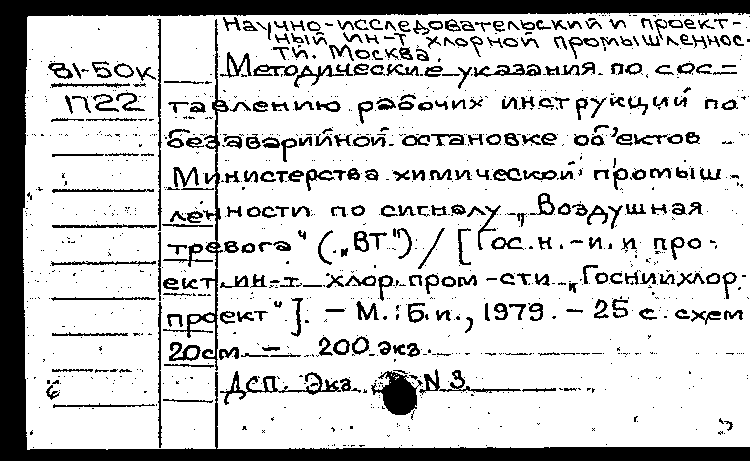 Научно-исследовательский и проект-
ный ин-т хлорной промышленнос-
ти. Москва.
81-50к Методические указания по сос=
П22 тавлению рабочих инструкций по
безаварийной остановке об'ектов
Министерства химической промыш-
ленности по сигналу „Воздушная
тревога" („ВТ") / [Гос. н.-и. и про-
ект. ин-т хлор. пром-сти „Госниихлор-
проект"]. - М.: Б.и., 1979. - 25 с. схем
20см. - 200 экз.
Дсп. Экз. N 3.